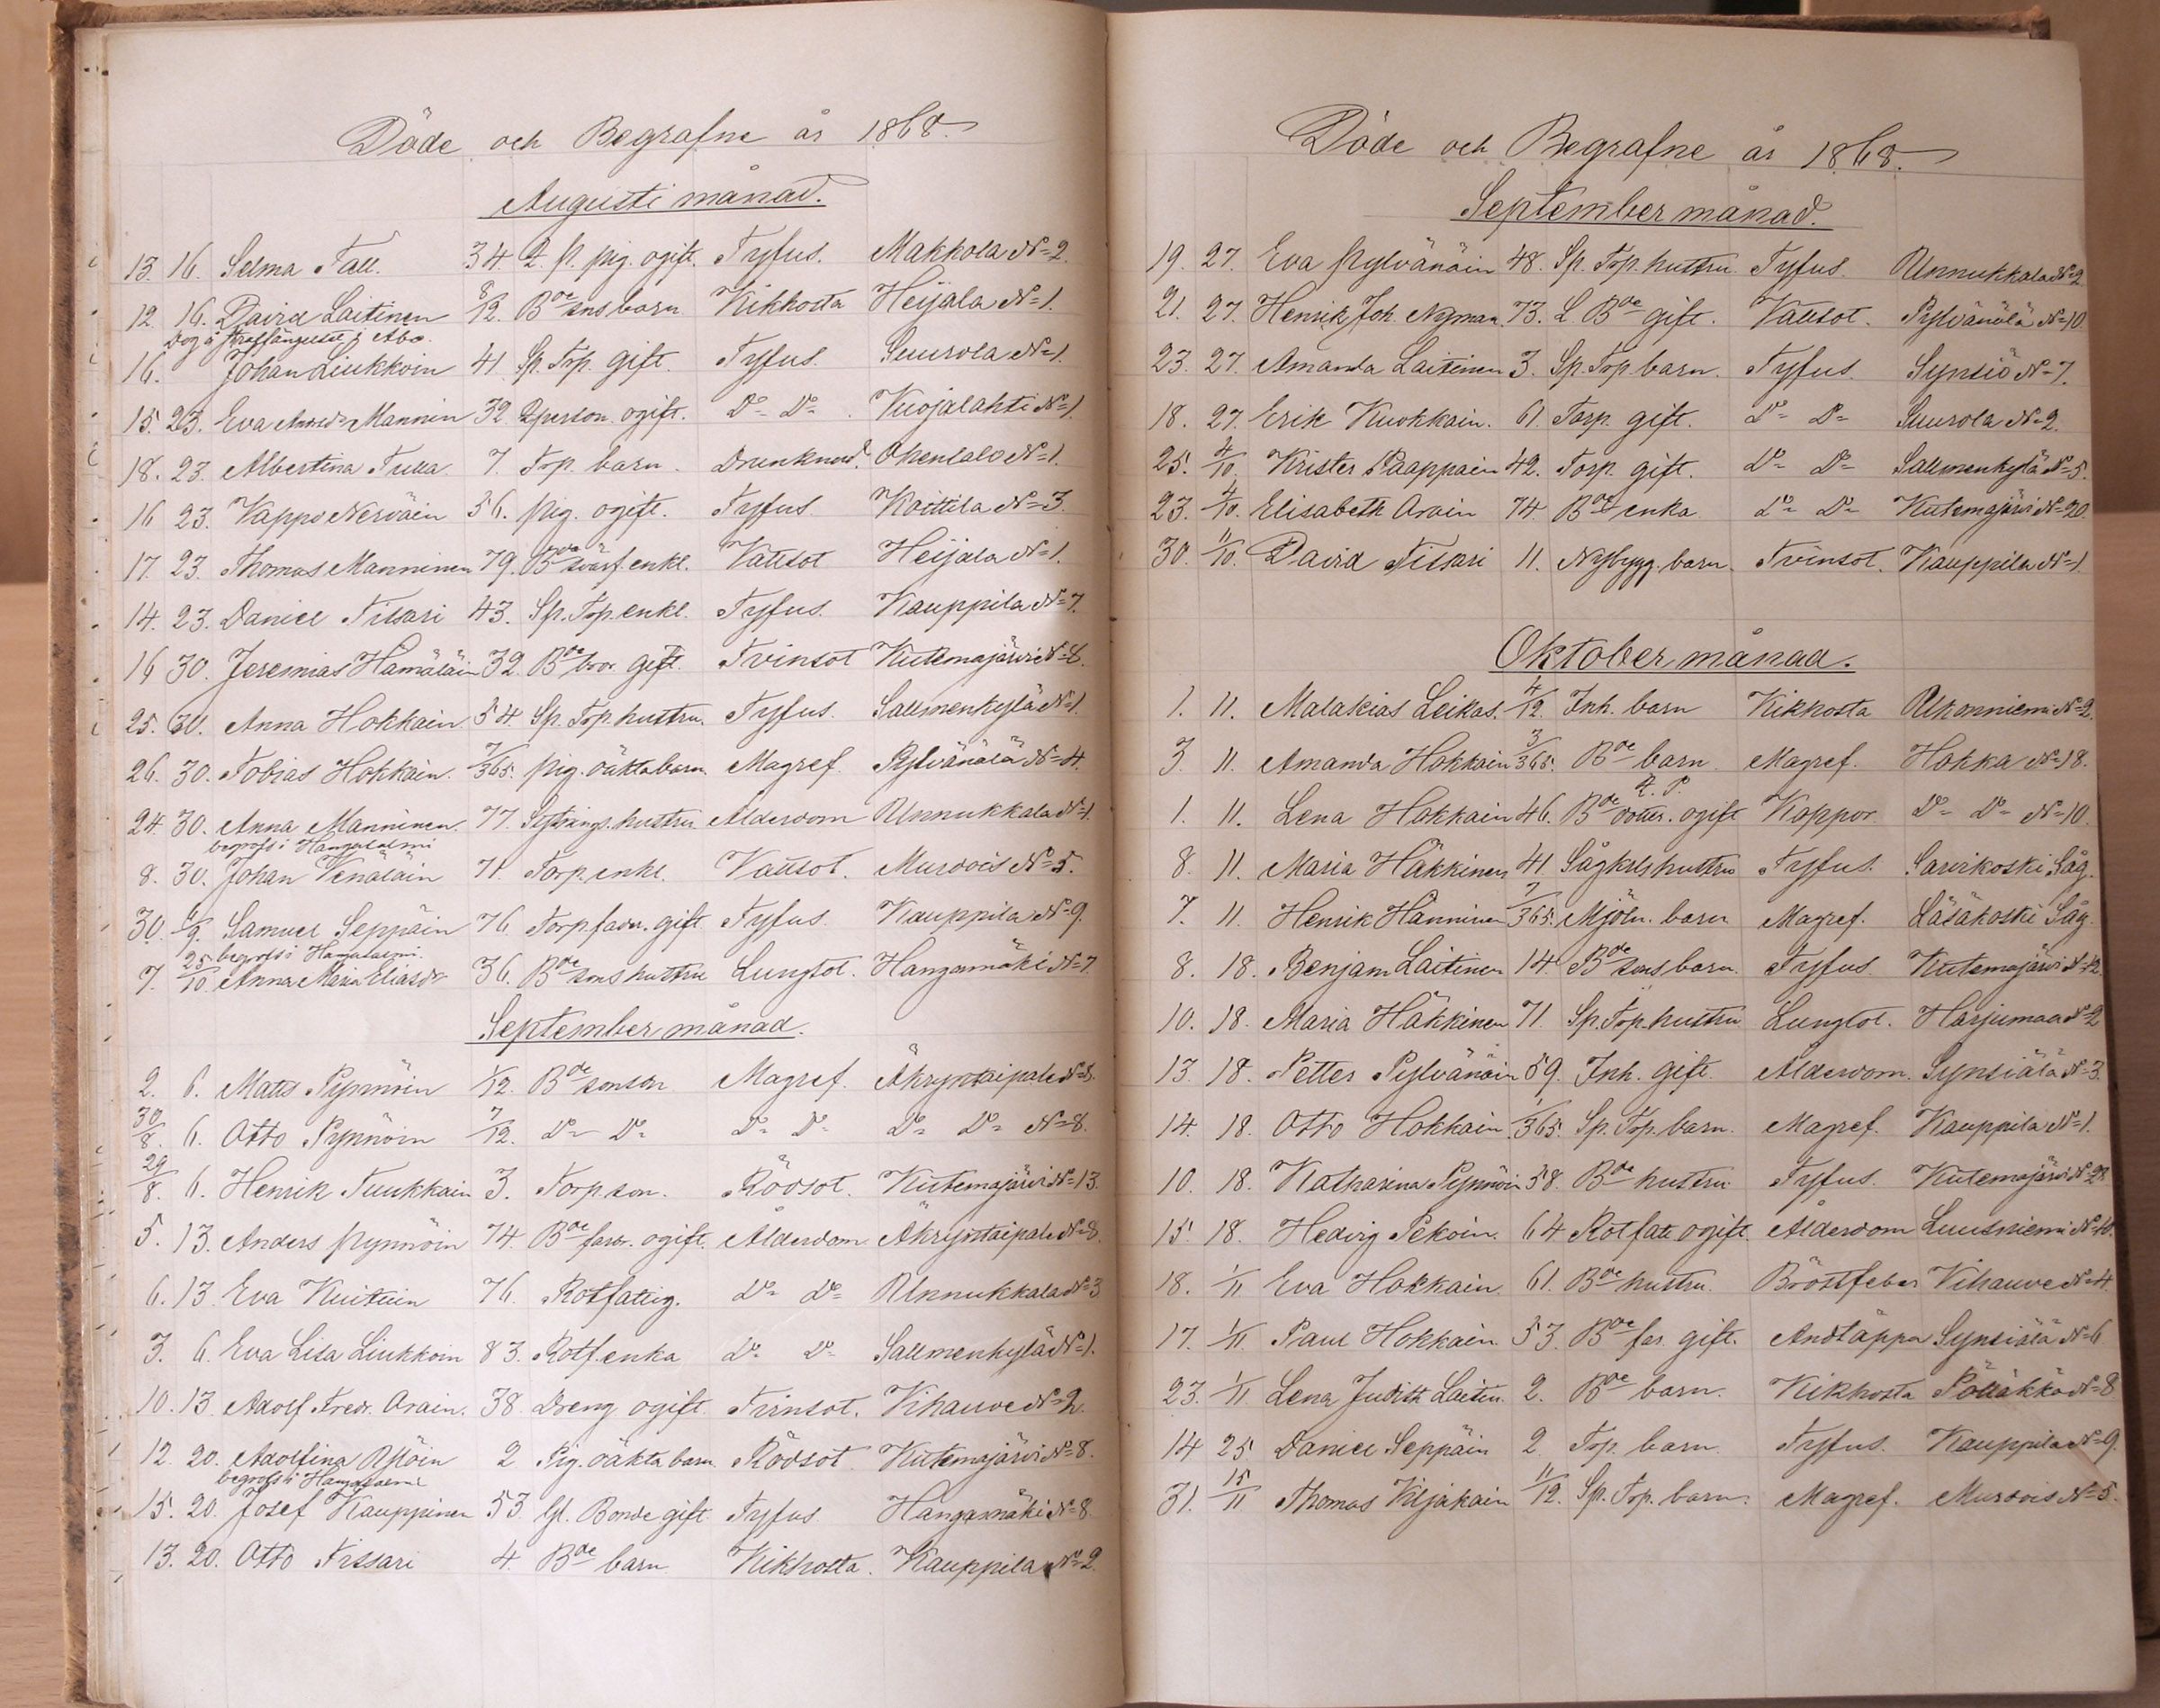 Döde och Begrafne år 1868.
Augusti månad.
13. 16. Selma Tall. 34 pig. ogift. Tyfus. Makkola N=2.
12. 16. David Laitinen 8/12. Bde sons barn Kikhosta Heijala N=1.
Dog å Straffängelset i Åbo.
16. Johan Liukkoin 41 Sp. Trp. gift. Tyfus. Suurola N=1.
15. 23. Eva Mannin 32. ogift. Do Do Kuojalahti N=1.
18. 23. Albertina Tulla 7. Trp. barn. Drunknad. N=1.
16 23. Vappu Neroäin 56. pig. ogift. Tyfus Koittila N=3.
17. 23. Thomas Manninen 79. Bde enkl. Vattsot Heijala N=1.
14. 23. Daniel Tissari 43. Sp. Trp. enkl. Tyfus. Kauppila N=7.
16 30. Jeremias Hämäläin 32. Bde bror gift. Tvinsot Kutemajärvi N=8.
25. 30. Anna Hokkain 54 Sp. Trp. hustru. Tyfus. Sallmenkylä N=1.
26. 30. Tobias Hokkain. 7/365. pig. oäkta barn. Magref. Pylvänälä N=4.
24. 30. Anna Manninen. 77. hustru Ålderdom Unnukkala N=1.
begrofs i Hangasalmi
8. 30. Johan Venäläin 71. Torp. enkl. Vattsot. Murdois N=5.
30. 6/9. Samuel Seppäin 76 Torp fadr. gift Tyfus. Kauppila N=9.
begrofs i Hangasalmi.
7. 25/10. Anna Maria Eliasdr 36. Bde sons hustru Lungsot. Hangasmäki N=7.
September månad.
2. 6. Matts Pynnöin 1/12. Bde sonson Magref. Äkryntaipale N=8.
30/8. 6. Otto Pynnöin 7/12. Do Do Do Do Do Do N=8.
29/8. 6. Henrik Tuukkain 3. Torp. son. Rödsot. Kutemajärvi N=13.
5. 13. Anders Pynnöin 74. Bde farbr. ogift. Ålderdom Äkryntaipale N=8.
6. 13. Eva Kuituin 76. Rotfattig. Do Do Unnukkala N=3
3. 6. Eva Lisa Liukkoin 83. Rotf. enka Do Do Sallmenkylä N=1.
10. 13. Adolf Fredr. Arain. 38. Dreng ogift. Tvinsot. Vihauvo N=2.
12. 20. Adolfina 2 Pig. oäkta barn Rödsot. Kutemajärvi N=8.
begrofs i Hangasalmi
15. 20. Josef Kauppinen 53. Bonde gift. Tyfus Hangasmäki N=8.
13. 20. Otto Tissari 4. Bde barn. Kikhosta. Kauppila N=2.
Döde och Begrafne år 1868.
September månad.
19. 27. Eva Pylvänäin 48. Sp. Trp. hustru. Tyfus. Unnukkala N=2
21. 27. Henrik Joh. Nyman. 73. L. Bde gift. Vattsot. Pylvänälä N=10.
23. 27. Amanda Laitinen 3. Sp. Trp. barn. Tyfus. Synsiö N=7.
18. 27. Erik Kuokkain. 61. Torp. gift. Do Do Suurola N=2.
25. 4/10. Krister Paappain 42. Torp. gift. Do Do Sallmenkylä N=5.
23. 4/10. Elisabeth Arain 74. Bde enka Do Do Kutemajärvi N=20.
30. 11/10. David Tissari 11. Nybygg. barn. Tvinsot. Kauppila N=1.
Oktober månad.
1. 11. Malakias Leikas. 4/12. Inh. barn Kikhosta Ukonniemi N=2.
3. 11. Amanda Hokkain 3/365. Bde barn. Magref. Hokka N=18.
1. 11. Lena Hokkain 46. Bde dotter. ogift Koppor. Do Do N=10.
8. 11. Maria Häkkinen 41. hustru Tyfus. Sarvikoski Såg.
7. 11. Henrik Hänninen 7/365. Mjöln. barn Magref. Läsäkoski Såg.
8. 18. Benjam Laitinen 14. Bde sons barn. Tyfus. Kutemajärvi N=12.
10. 18. Maria Häkkinen 71. Sp. Trp. hustru Lungsot. Harjumaa N=2
13. 18. Petter Pylvänäin 59. Inh. gift. Ålderdom. Synsiälä N=3.
14. 18. Otto Hokkain 1/365. Sp. Trp. barn. Magref. Kauppila N=1.
10. 18. Katharina Pynnöin 58. Bde hustru Tyfus. Kutemajärvi N=28
15. 18. Hedvig Pekoin. 64 Rotfatt. ogift. Ålderdom Luusniemi N=10.
18. 1/11 Eva Hokkain 61. Bde hustru. Bröstfeber Vihauvo N=4.
17. 1/11. Paul Hokkain. 53. Bde far. gift. Andtäppa Synsiälä N=6
23. 1/11. Lena Judith Laitin. 2. Bde barn. Kikhosta Pölläkkä N=8
14 25. Daniel Seppäin 2. Trp. barn. Tyfus. Kauppila N=9.
31. 15/11 Thomas Kiljakain 11/12. Sp. Trp. barn. Magref. Murdois N=5.